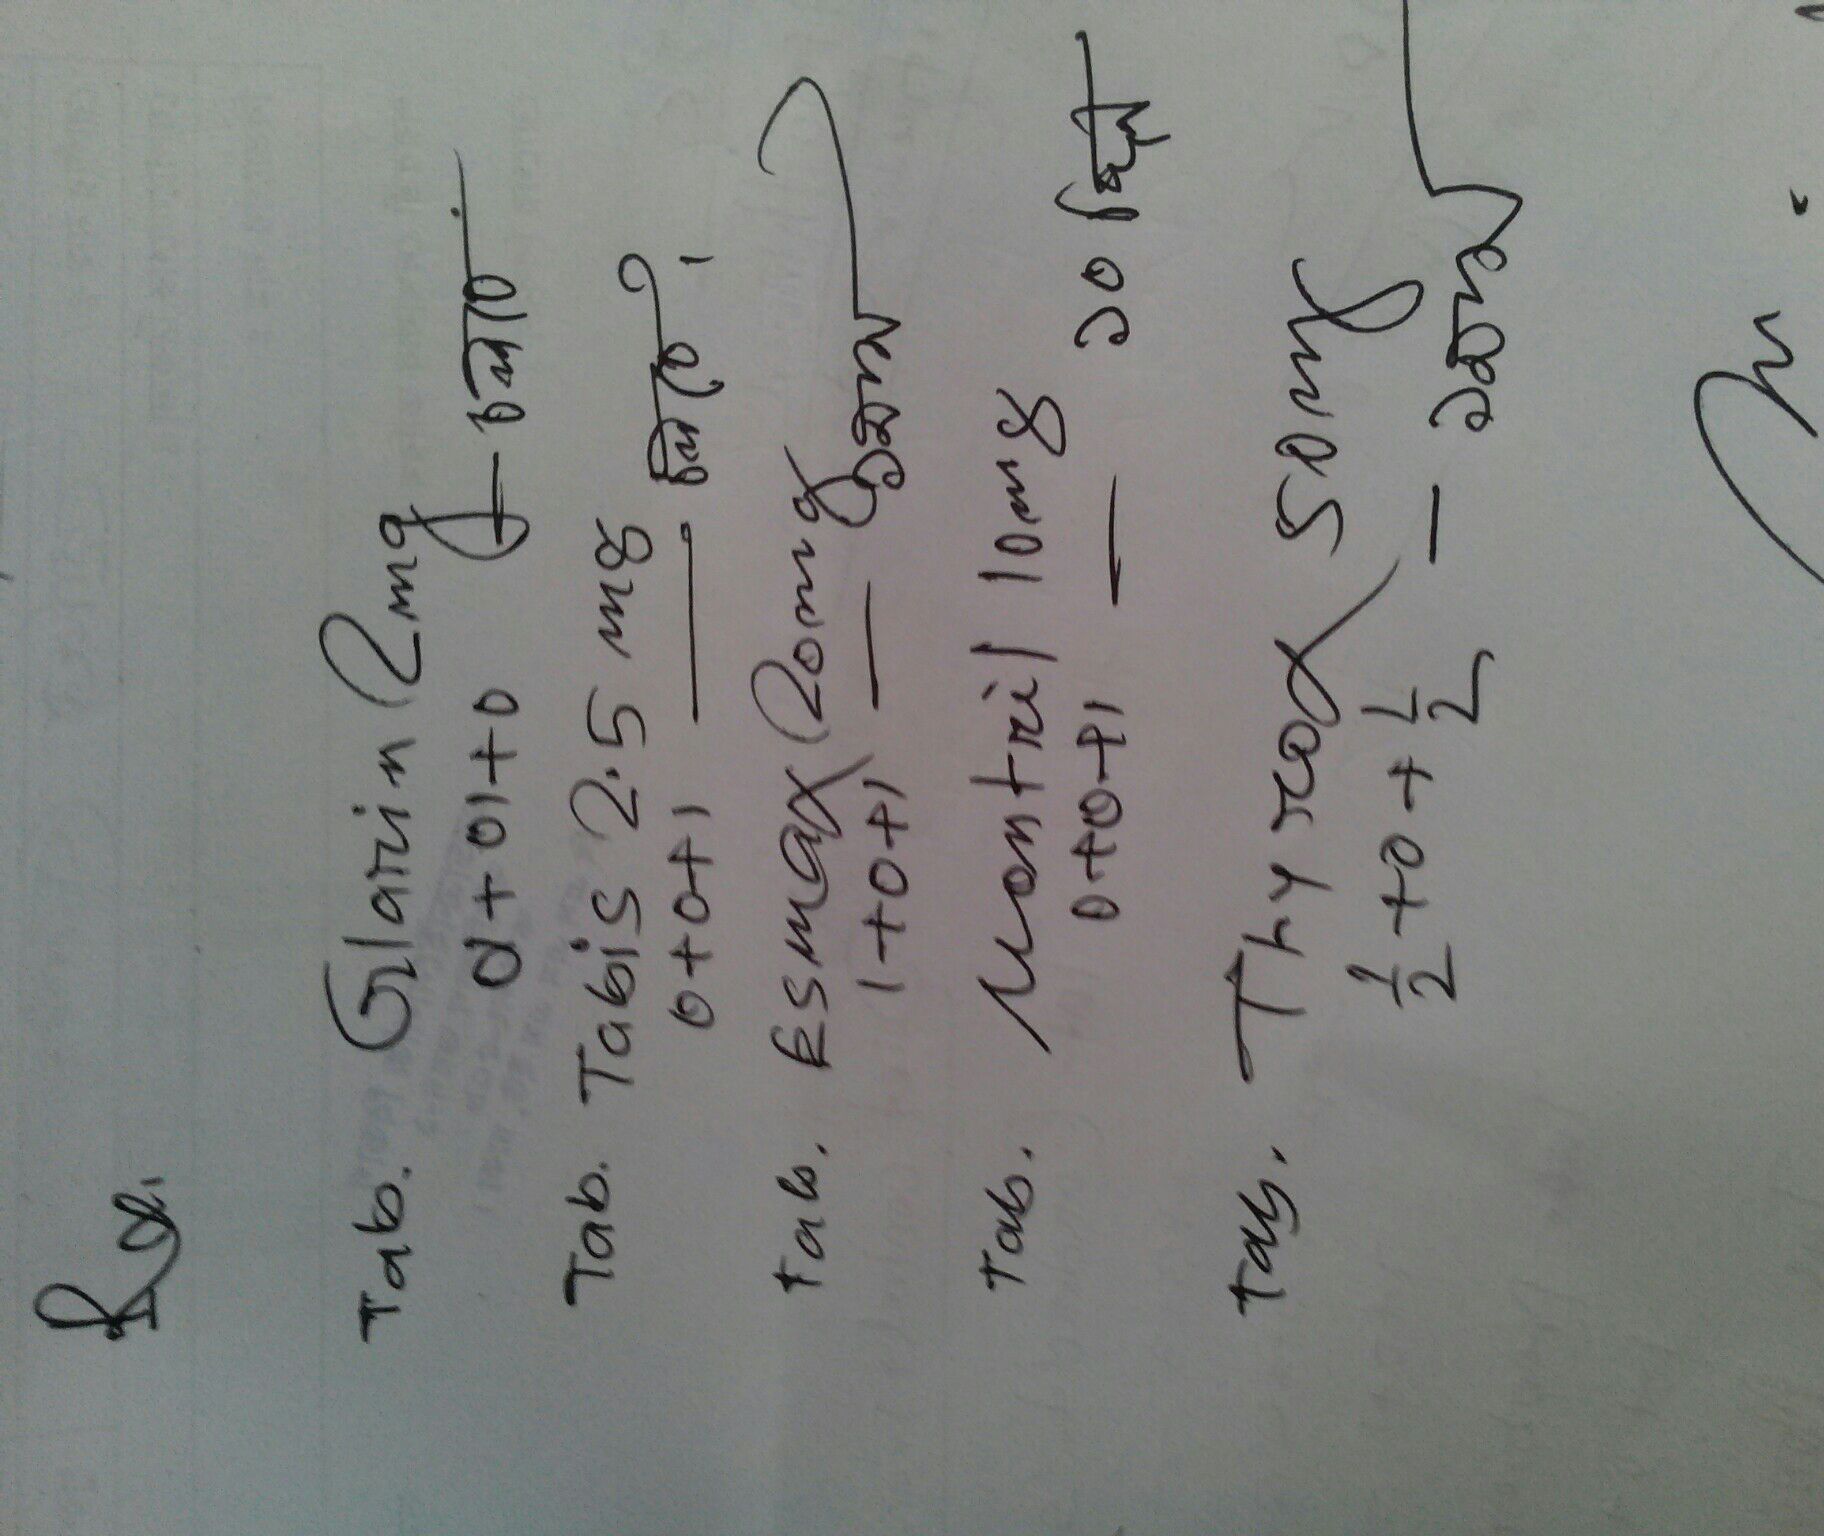 Rx.
Tab. Glarin 2mg
0+01+0 — চলবে
Tab. Tabis 2.5 mg
0+0+1 — চলবে।
Tab. Esmax 20mg
1+0+1 — ১মাস
Tab. Montril 10mg
0+0+1 — ১০ দিন
Tab. Thyrox 50mg
½+0+½ — ১মাস